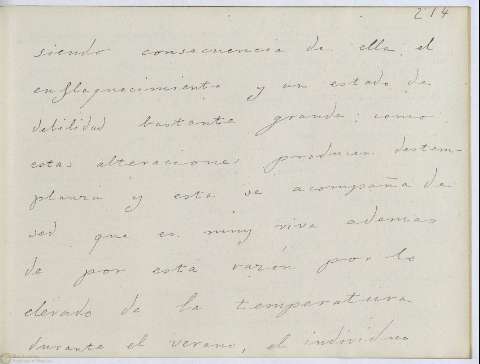 214
siendo consecuencia de ella el
enflaquecimiento y un estado de
debilidad bastante grande: como
estas alteraciones producen destem-
planza y esta se acompaña de
sed que es muy viva ademas
de por esta razón por lo
elevado de la temperatura
durante el verano, el individuo